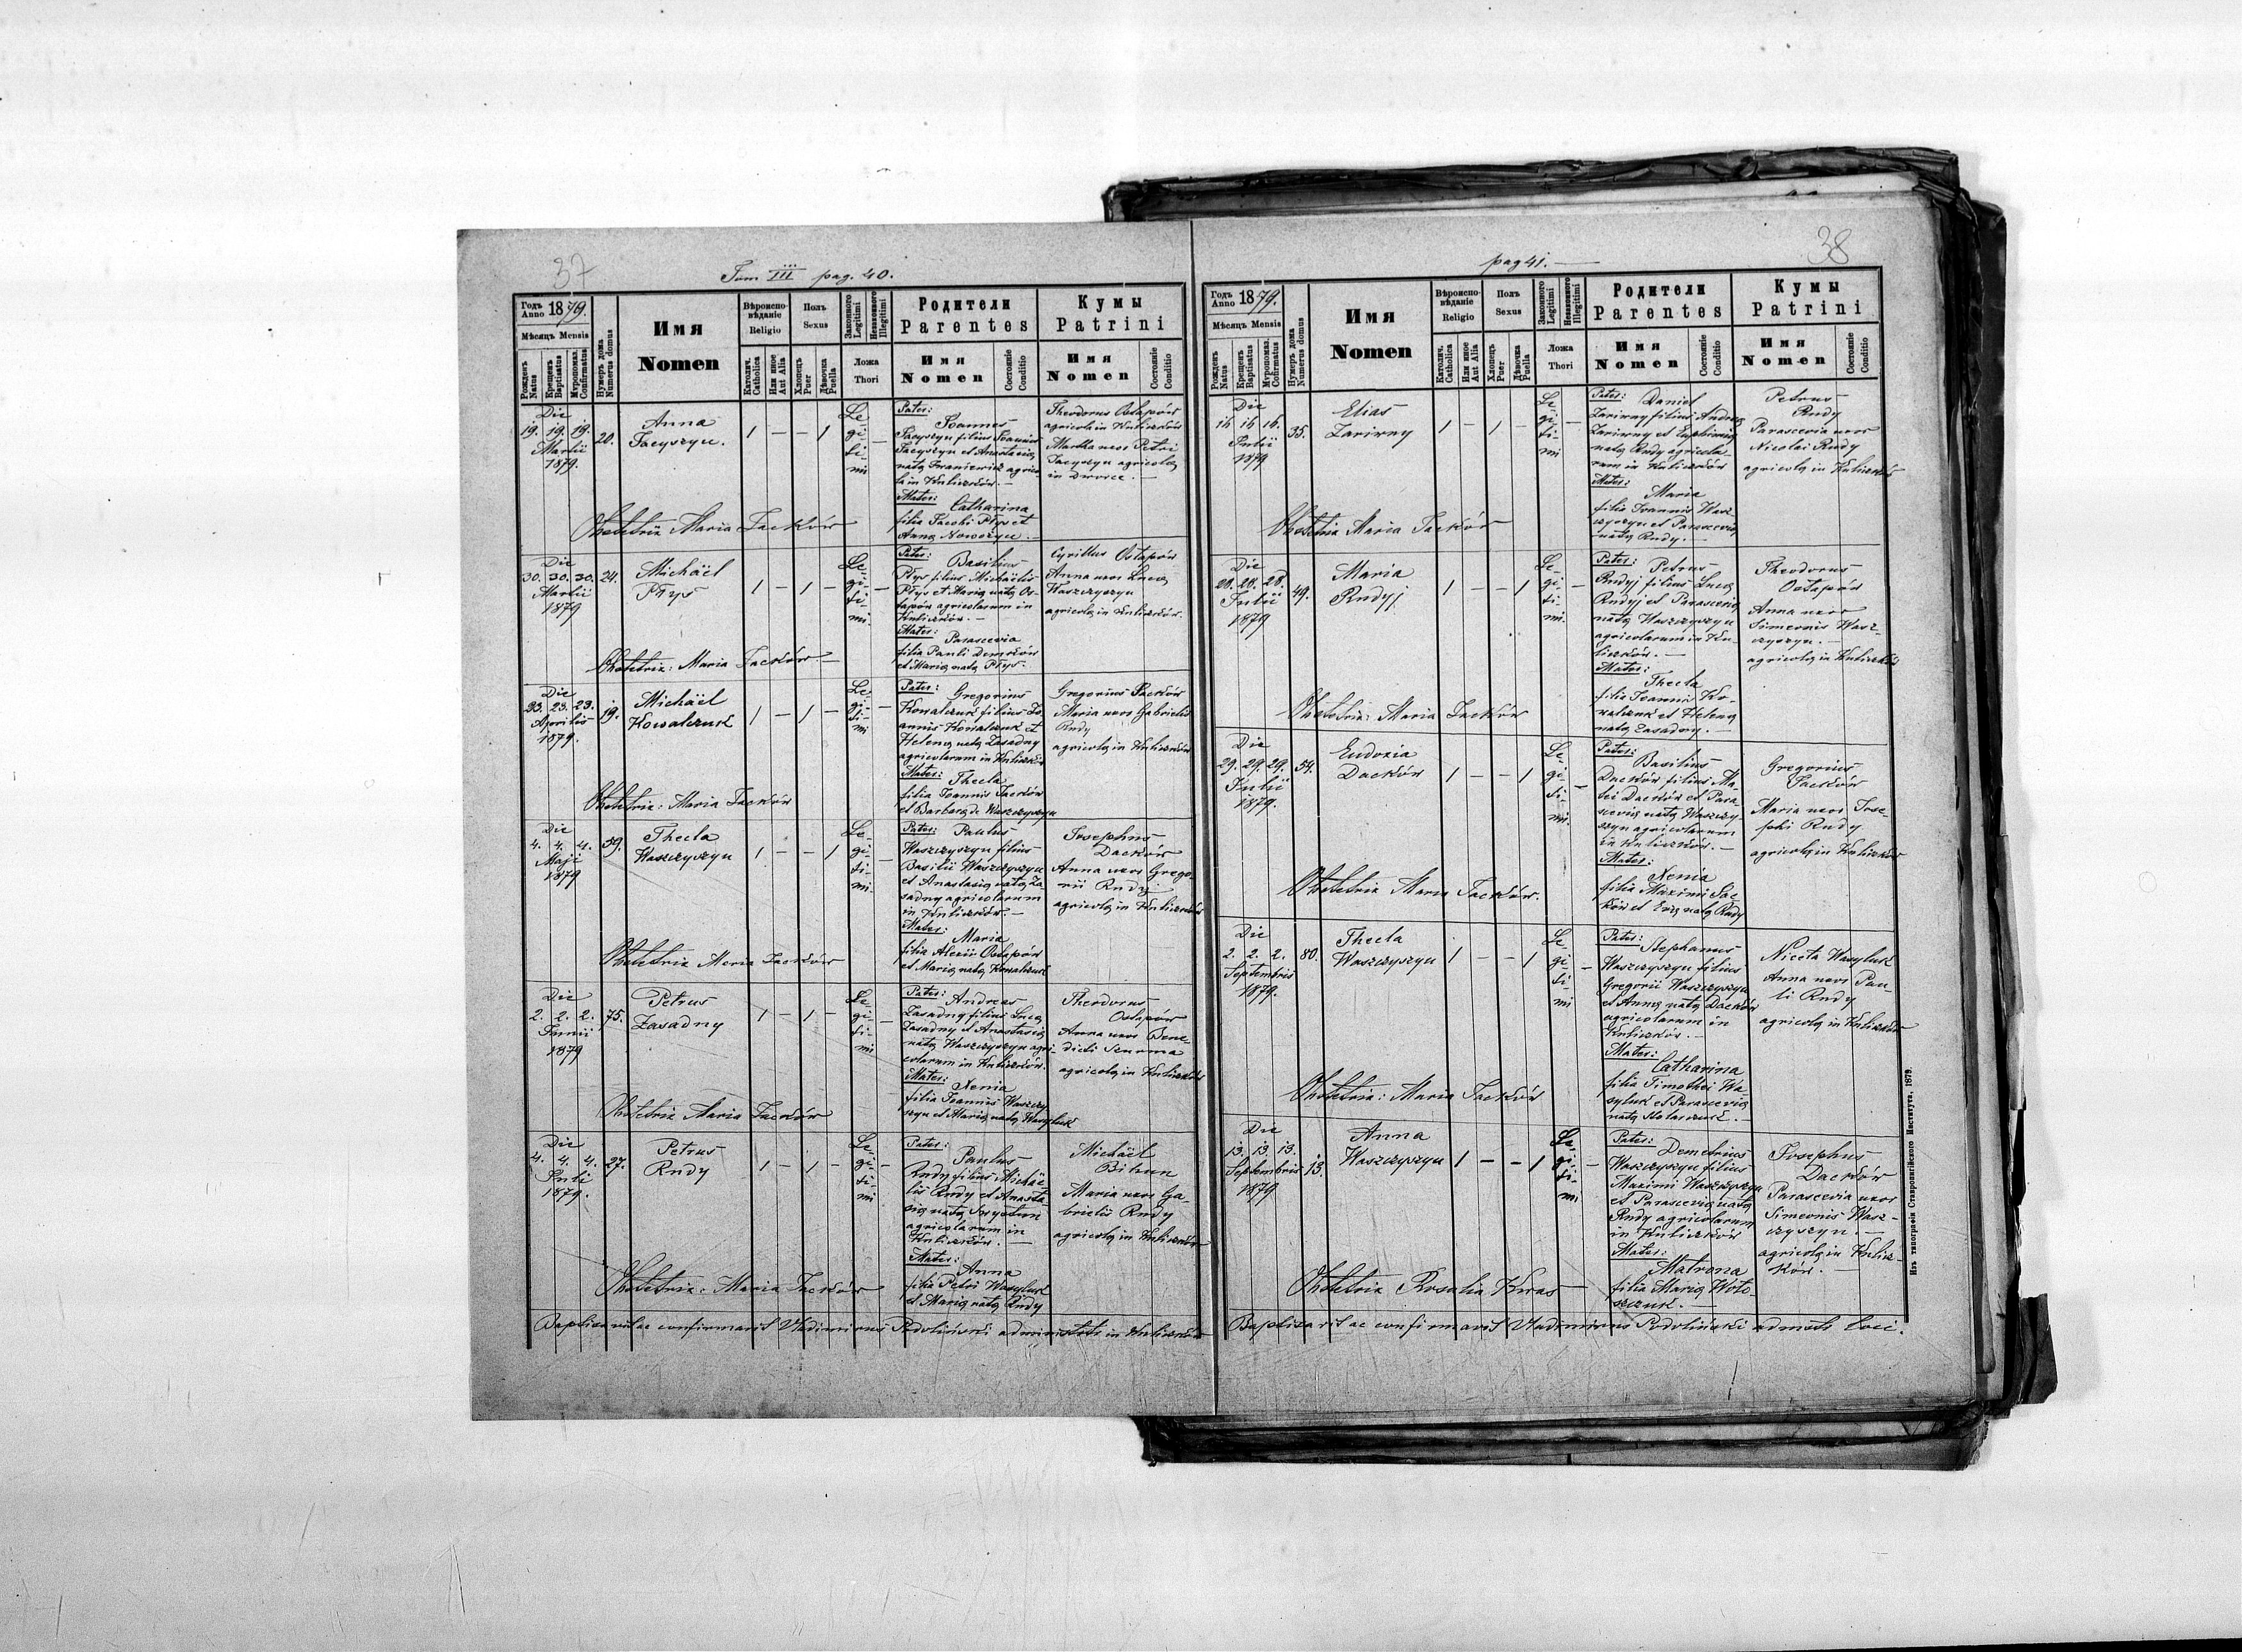 37
Tom III pag. 40.
Годъ Anno 1879.
Мѣсяцъ Mensis
Рожденъ Natus
Крещенъ Baptisatus
Мvропомаз. Confirmatus
Нумеръ дома Numerus domus
Имя
Nomen
Вѣроисповѣданіе
Religio
Католич. Catholica
Или иное Aut Alia
Полъ
Sexus
Хлопецъ Puer
Дѣвочка Puella
Законного Legitimi
Незаконного Illegitimi
Ложа
Thori
Родители
Parentes
Имя
Nomen
Состояніе Conditio
Кумы
Patrini
Имя
Nomen
Состояніе Conditio
Die
19. 19. 19.
Martii
1879.
20.
Anna
Jacyszyn.
1 - - 1
Le-
gi-
ti-
mi
Pater:
Joannes
Jacyszyn filius Joannis
Jacyszyn et Anastasia
nata Iwaniewicz agrico-
la in Kuliczków. —
Mater: Catharina
filia Jacobi Ptys et
Anna Nowożyn. —
Theodorus Ostapów
agricola in Kuliczków
Martha uxor Petri
Jacyszyn agricola
in Dworce. —
Obstetrix Maria Jacków
Die
30. 30. 30.
Martii
1879
24.
Michäel
Ptys
1 - 1 -
Le-
gi-
ti-
mi.
Pater: Basilius
Ptys filius Michäelis
Ptys et Maria nata Os-
tapów agricolarum in
Kuliczków. —
Mater: Parascevia
filia Pauli Demków
et Maria nata Ptys.
Cyrillus Ostapów
Anna uxor Luca
Waszczyszyn
agricola in Kuliczków.
Obstetrix: Maria Jacków. —
Die
23. 23. 23.
Aprilis
1879.
19.
Michäel
Kowalczuk
1 - 1 -
Le-
gi-
ti-
mi
Pater: Gregorius
Kowalczuk filius Jo-
annis Kowalczuk et
Helena nata Zasadny
agricolarum in Kuliczków
Mater: Thecla
filia Joannis Jacków
et Barbara de Waszczyszyn
Gregorius Jacków
Maria uxor Gabrielis
Rudy
agricola in Kuliczków
Obstetrix: Maria Jacków
Die
4. 4. 4.
Maji
1879
59.
Thecla
Waszczyszyn
1 - - 1
Le-
gi-
ti-
mi.
Pater: Paulus
Waszczyszyn filius
Basilii Waszczyszyn
et Anastasia nata Za-
sadny agricolarum
in Kuliczków. —
Mater: Maria
filia Alexii Ostapów
et Maria nata Kowalczuk
Josephus
Daćków
Anna uxor Grego-
rii Rudyj
agricola in Kuliczków
Obstetrix Maria Jacków
Die
2. 2. 2.
Junii
1879
75.
Petrus
Zasadny
1 - 1 -
Le-
gi-
ti-
mi
Pater: Andreas
Zasadny filius Luca
Zasadny et Anastasia
nata Waszczyszyn agri-
colarum in Kuliczków.
Mater: Xenia
filia Joannis Waszczy-
szyn et Maria nata Wasyluk
Theodorus
Ostapów
Anna uxor Bene-
dicti Szurma
agricola in Kuliczków
Obstetrix Maria Jacków
Die
4. 4. 4.
Juli
1879.
27.
Petrus
Rudy
1 - 1 -
Le-
gi-
ti-
mi
Pater:
Paulus
Rudy filius Michäe-
lis Rudy et Anasta-
sia nata
agricolarum in
Kuliczków. —
Mater: Anna
filia Petri Wasyluk
et Maria nata Rudy
Michäel
Bihun
Maria uxor Ga-
brielis Rudy
agricola in Kuliczków
Obstetrix: Maria Jacków
Baptisavit ac confirmavit Vladimirus Podoliński administ: in Kuliczków
38
pag 41. —
Годъ Anno 1879.
Мѣсяцъ Mensis
Рожденъ Natus
Крещенъ Baptisatus
Мvропомаз. Confirmatus
Нумеръ дома Numerus domus
Имя
Nomen
Вѣроисповѣданіе
Religio
Католич. Catholica
Или иное Aut Alia
Полъ
Sexus
Хлопецъ Puer
Дѣвочка Puella
Законного Legitimi
Незаконного Illegitimi
Ложа
Thori
Родители
Parentes
Имя
Nomen
Состояніе Conditio
Кумы
Patrini
Имя
Nomen
Состояніе Conditio
Die
16 16 16.
Julii
1879
35.
Elias
Zarirny
1 - 1 -
Le-
gi-
ti-
mi
Pater: Daniel
Zarirny filius Andrea
Zarirny et Euphimia
nata Rudy agricola-
rum in Kuliczków
Mater:
Maria
filia Joannis Wasz-
czyszyn et Parascevia
nata Rudy. —
Petrus
Rudy
Parascevia uxor
Nicolai Rudy
agricola in Kuliczków
Obstetrix Maria Jacków
Die
28. 28. 28.
Julii
1879
49.
Maria
Rudyj
1 - - 1
Le-
gi-
ti-
mi.
Pater: Petrus
Rudyj filius Luca
Rudyj et Parascevia
nata Waszczyszyn
agricolarum in Ku-
liczków. —
Mater:
Thecla
filia Joannis Ko-
walczuk et Helena
nata Zasadny. —
Theodorus
Ostapów
Anna uxor
Simeonis Wasz-
czyszyn. —
agricola in Kuliczków
Obstetrix: Maria Jacków
Die
29. 29. 29.
Julii
1879.
54.
Eudoxia
Daćków
1 - - 1
Le-
gi-
ti-
mi.
Pater:
Basilius
Daćków filius Ma-
tei Daćków et Para-
scevia nata Waszczy-
szyn agricolarum
in Kuliczków. —
Mater:
Xenia
filia Maximi Jac-
ków et Eva nata Rudy
Gregorius
Jacków
Maria uxor Jose-
phi Rudy
agricola in Kuliczków
Obstetrix Maria Jacków.
Die
2. 2. 2.
Septembris
1879.
80.
Thecla
Waszczyszyn
1 - - 1
Le-
gi-
ti-
mi
Pater:
Stephanus
Waszczyszyn filius
Gregorii Waszczyszyn
et Anna nata Daćków
agricolarum in
Kuliczków. —
Mater:
Catharina
filia Timothei Wa-
syluk et Parascevia
nata
Niceta Wasyluk
Anna uxor Pau-
li Rudy
agricola in Kuliczków
Obstetrix: Maria Jacków
Die
13. 13. 13.
Septembris
1879
13.
Anna
Waszczyszyn
1 - - 1
Le-
gi-
ti-
mi
Pater: Demetrius
Waszczyszyn filius
Maximi Waszczyszyn
et Parascevia nata
Rudy agricolarum
in Kuliczków
Mater:
Matrona
filia Maria Woło-
szczuk. —
Josephus
Daćków
Parascevia uxor
Simeonis Wasz-
czyszyn. —
agricola in Kulicz-
ków. —
Obstetrix Rosalia Kwas
Baptisavit ac confirmavit Vladimirus Podoliński admsti loci.
Изъ типографіи Ставропигійского Института, 1879.